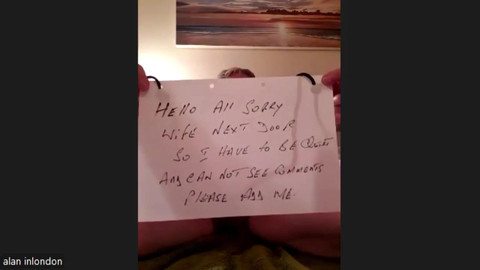 HELLO All SORRY
WIFE NEXT DOOR
SO I HAVE to BE QUIET
AND CAN NOT SEE COMMENTS
PLEASE ADD ME.
alan inlondon